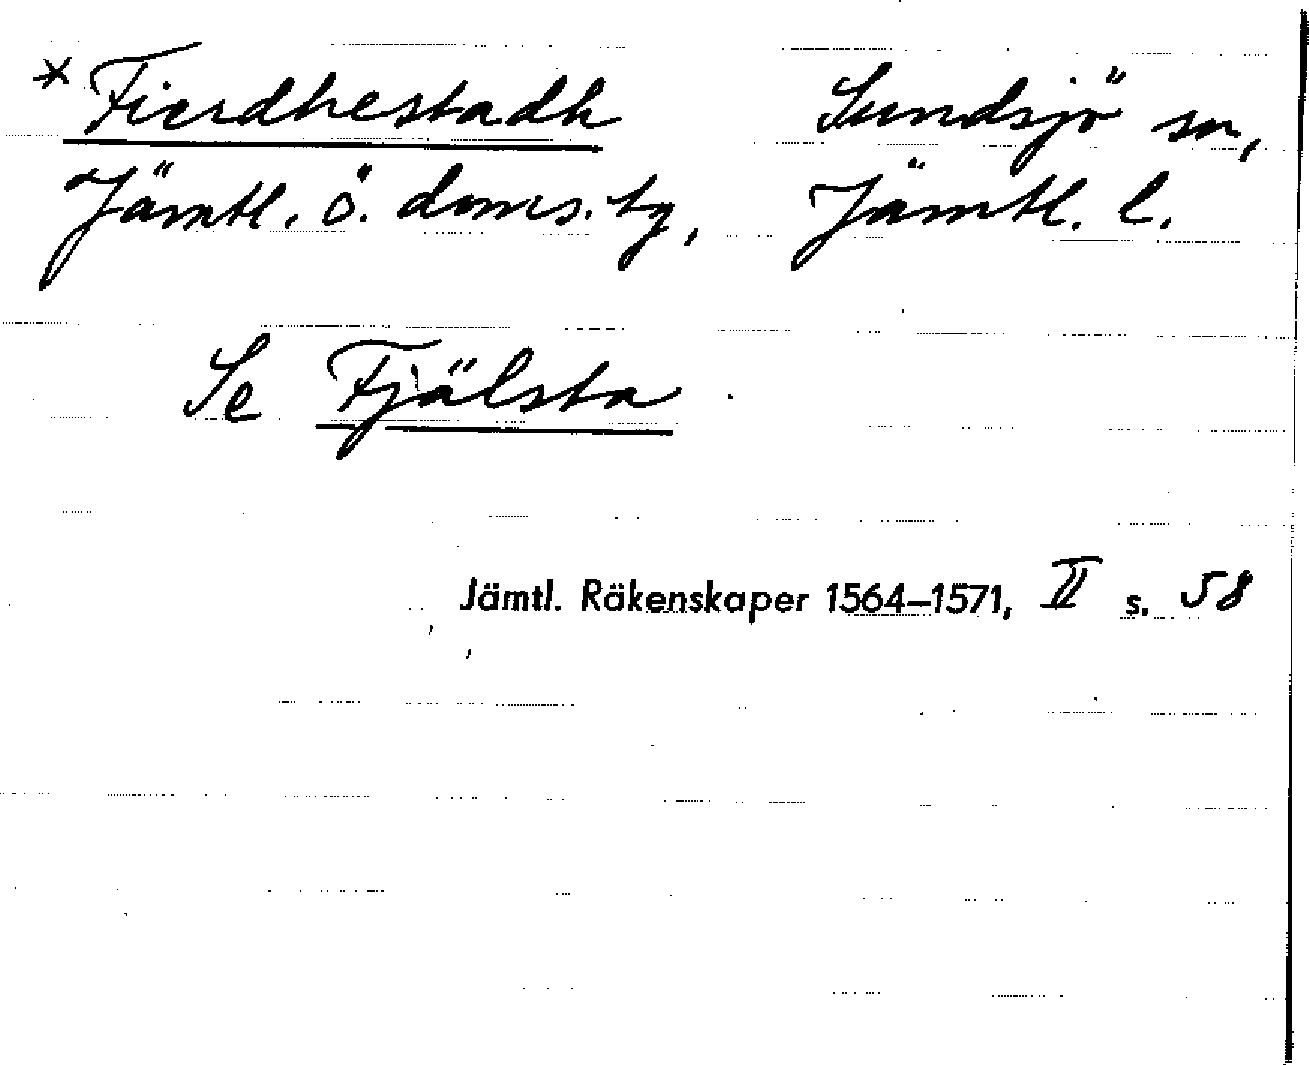 * Fierdhestadh Sundsjö sn,
Jämtl. ö. doms. tg, Jämtl. l.
Se Fjälsta.
Jämtl. Räkenskaper 1564–1571, II s. 58